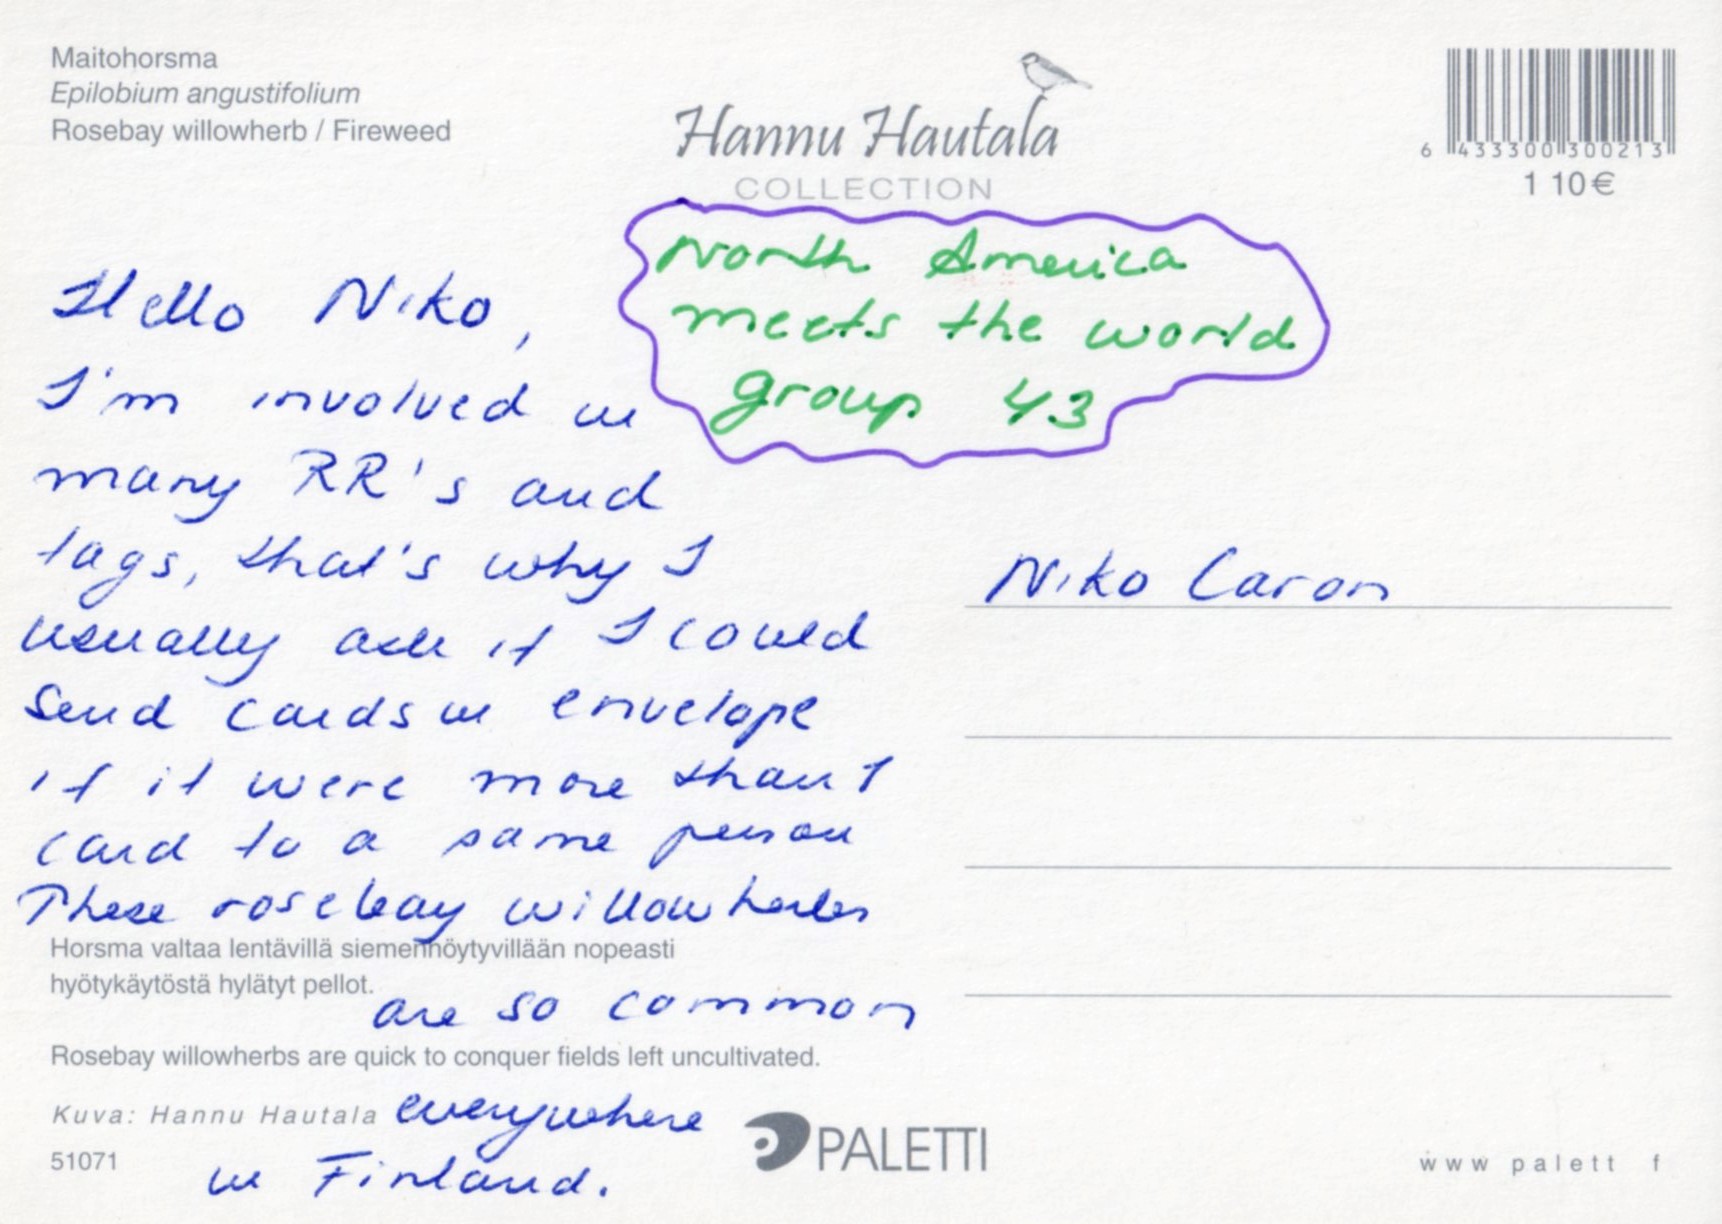 Maitohorsma
Epilobium angustifolium
Rosebay willowherb / Fireweed
Hannu Hautala
COLLECTION
6 433300 300213
1 10€
North America
meets the world
group 43
Hello Niko,
I'm involved in
many RR's and
tags, that's why I
usually ask if I could
send cards in envelope
if it were more than 1
card to a same person
These rosebay willowherbs
Horsma valtaa lentävillä siemenhöytyvillään nopeasti
hyötykäytöstä hylätyt pellot.
are so common
Rosebay willowherbs are quick to conquer fields left uncultivated.
Kuva: Hannu Hautala
everywhere
51071
in Finland.
Niko Caron
PALETTI
www palett f